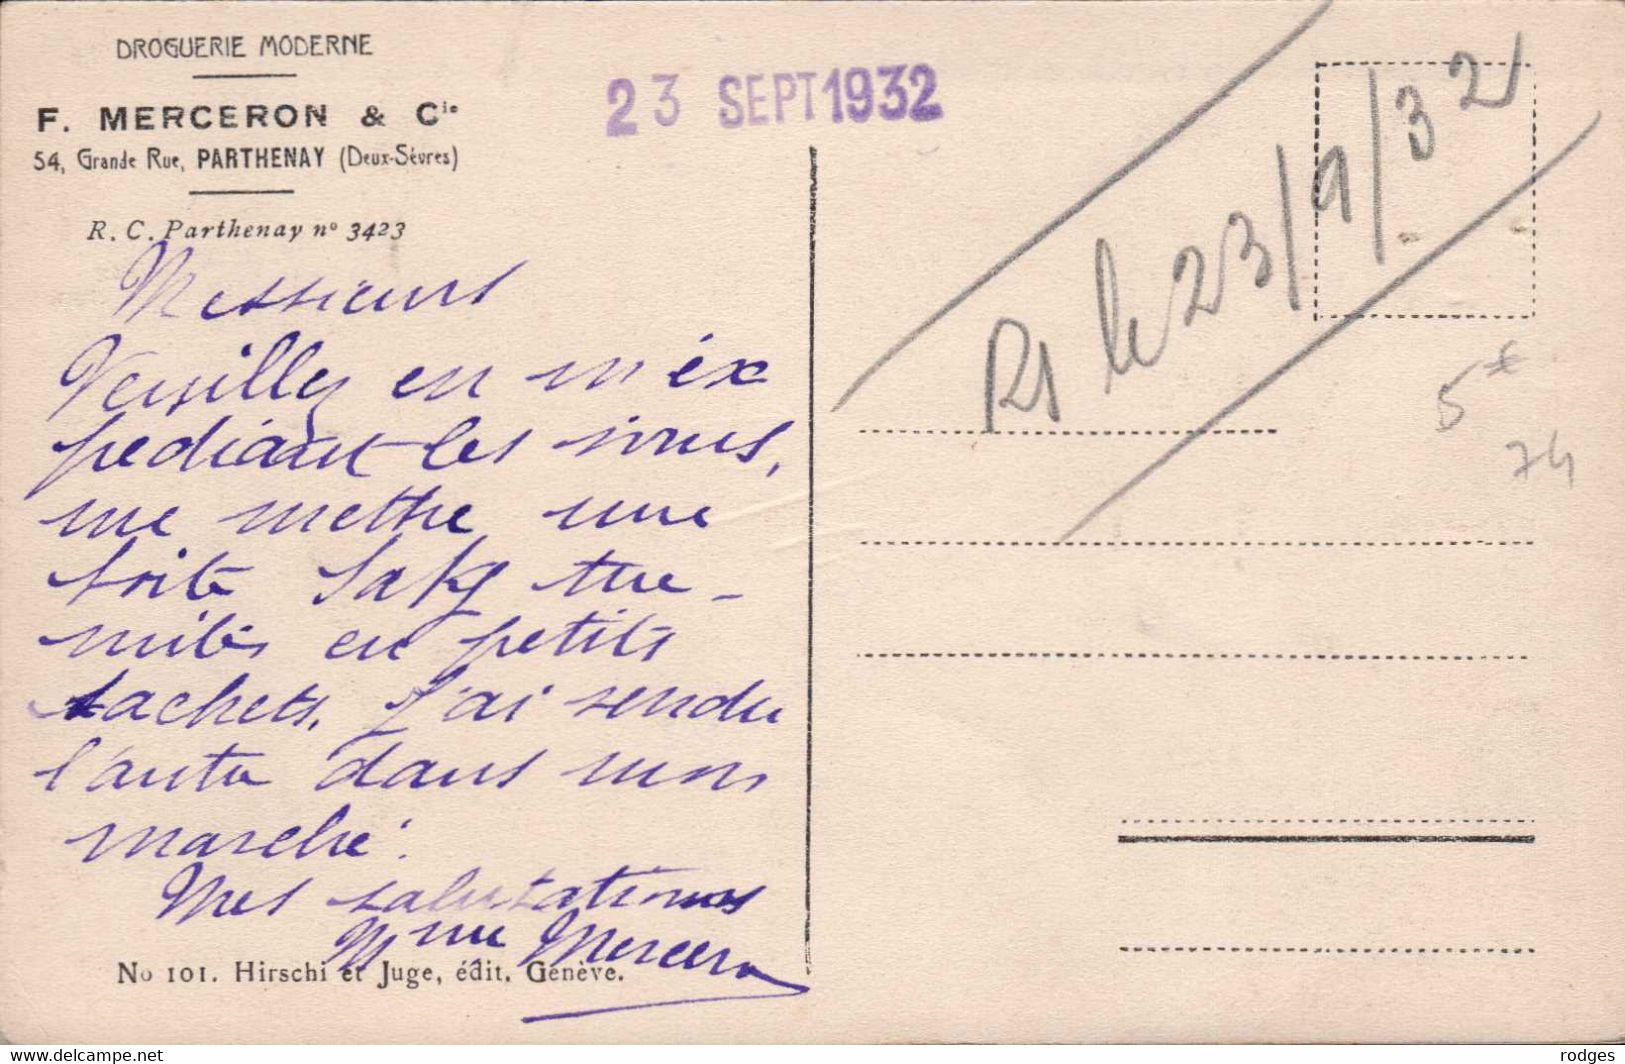 DROGUERIE MODERNE
F. MERCERON & Cie
54, Grande Rue, PARTHENAY (Deux-Sèvres)
R. C. Parthenay no 3423
23 SEPT 1932
Rs le 23/9/32
5€
74
Messieurs
Veuillez en m'ex
pediant les
me mettre une
boite
en petits
sachets. J'ai rendu
l'auto dans mon
marché.
Mes salutations
Mme Merceron
No 101. Hirschi et Juge, édit. Genève.
www.delcampe.net
rodges